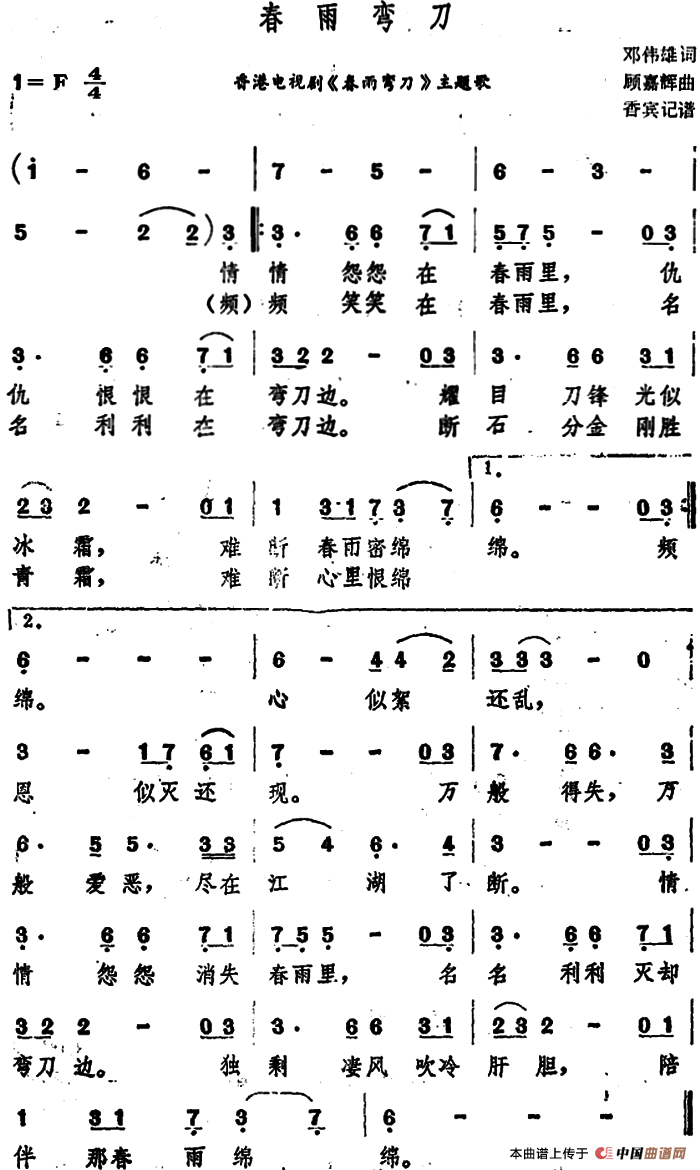 春雨弯刀
邓伟雄词
1=F 4/4 香港电视剧《春雨弯刀》主题歌 顾嘉辉曲
香宾记谱
(i - 6 - | 7 - 5 - | 6 - 3 -
5 - 2 2) 3 |: 3· 6 6 7 1 | 5 7 5 - 0 3
情 情 怨怨 在 春雨里， 仇
（频）频 笑笑 在 春雨里， 名
3· 6 6 7 1 | 3 2 2 2 - 0 3 | 3· 6 6 3 1
仇 恨 恨 在 弯刀边。 耀 目 刀锋 光似
名 利 利 在 弯刀边。 断 石 分金 刚胜
1.
2 3 2 - 0 1 | 1 3 1 7 3 7 | 6 - - 0 3 :|
冰 霜， 难 断 春雨密绵 绵。 频
青 霜， 难 断 心里恨绵
2.
6 - - - | 6 - 4 4 2 | 3 3 3 - 0
绵。 心 似絮 还乱，
3 - 1 7 6 1 | 7 - - 0 3 | 7· 6 6· 3
恩 似灭还 现。 万 般 得失，万
6· 5 5· 3 3 | 5 4 6· 4 | 3 - - 0 3
般 爱恶， 尽在 江 湖 了 断。 情
3· 6 6 7 1 | 5 7 5 5 - 0 3 | 3· 6 6 7 1
情 怨 怨 消失 春雨里， 名 名 利利 灭却
3 2 2 2 - 0 3 | 3· 6 6 3 1 | 2 3 2 - 0 1
弯刀边。 独 剩 凄风 吹冷 肝 胆， 陪
1 3 1 7 3 7 | 6 - - -
伴 那春 雨 绵 绵。
本曲谱上传于 中国曲谱网